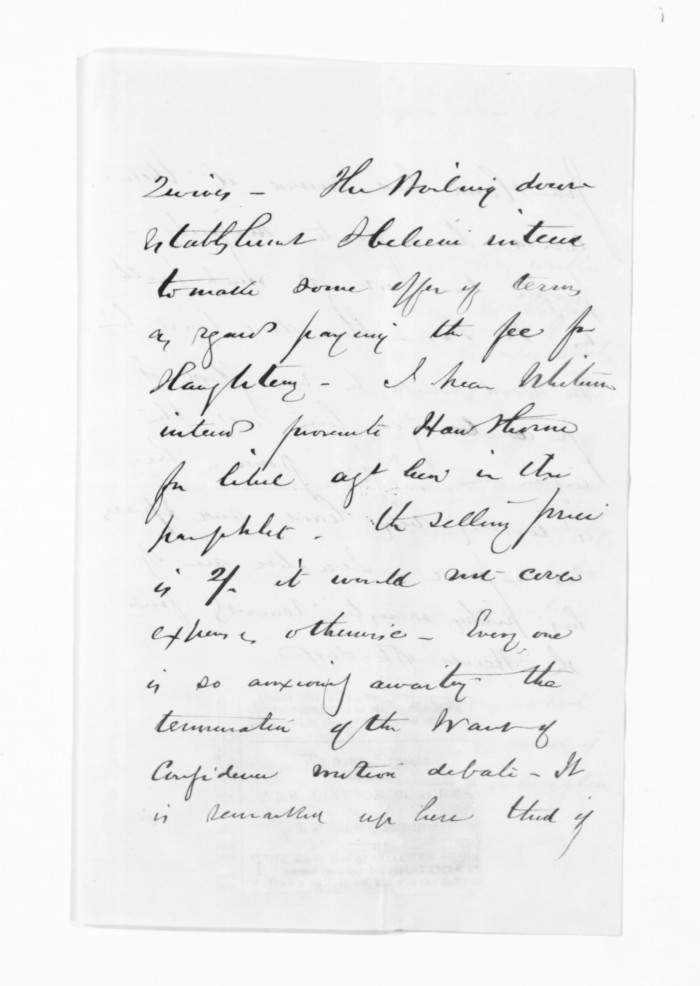 The Boiling down
Establishment I believe intend
to make some offer of terms
as regards paying the fee for
Slaughtering - I hear Whitmore
intends prosecute Hawthorne
for libel agt him in the
pamphlet. The selling price
is 2/- it would not cover
expenses otherwise - Every one
is so anxiously awaiting the
termination of the Want of
Confidence motion debate - It
is remarked up here that if